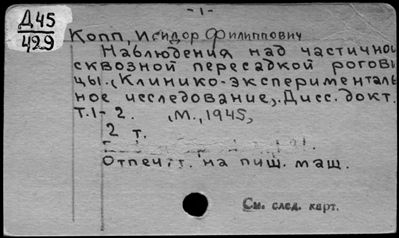 -1-
Д45
429
Копп, Исидор Филиппович
Наблюдения над частичной
сквозной пересадкой рогови
цы. (Клинико-эксперименталь
ное исследование). Дисс. докт.
Т.1-2. М., 1945,
2 т.
Отпеч. на пиш. маш.
См. след. карт.